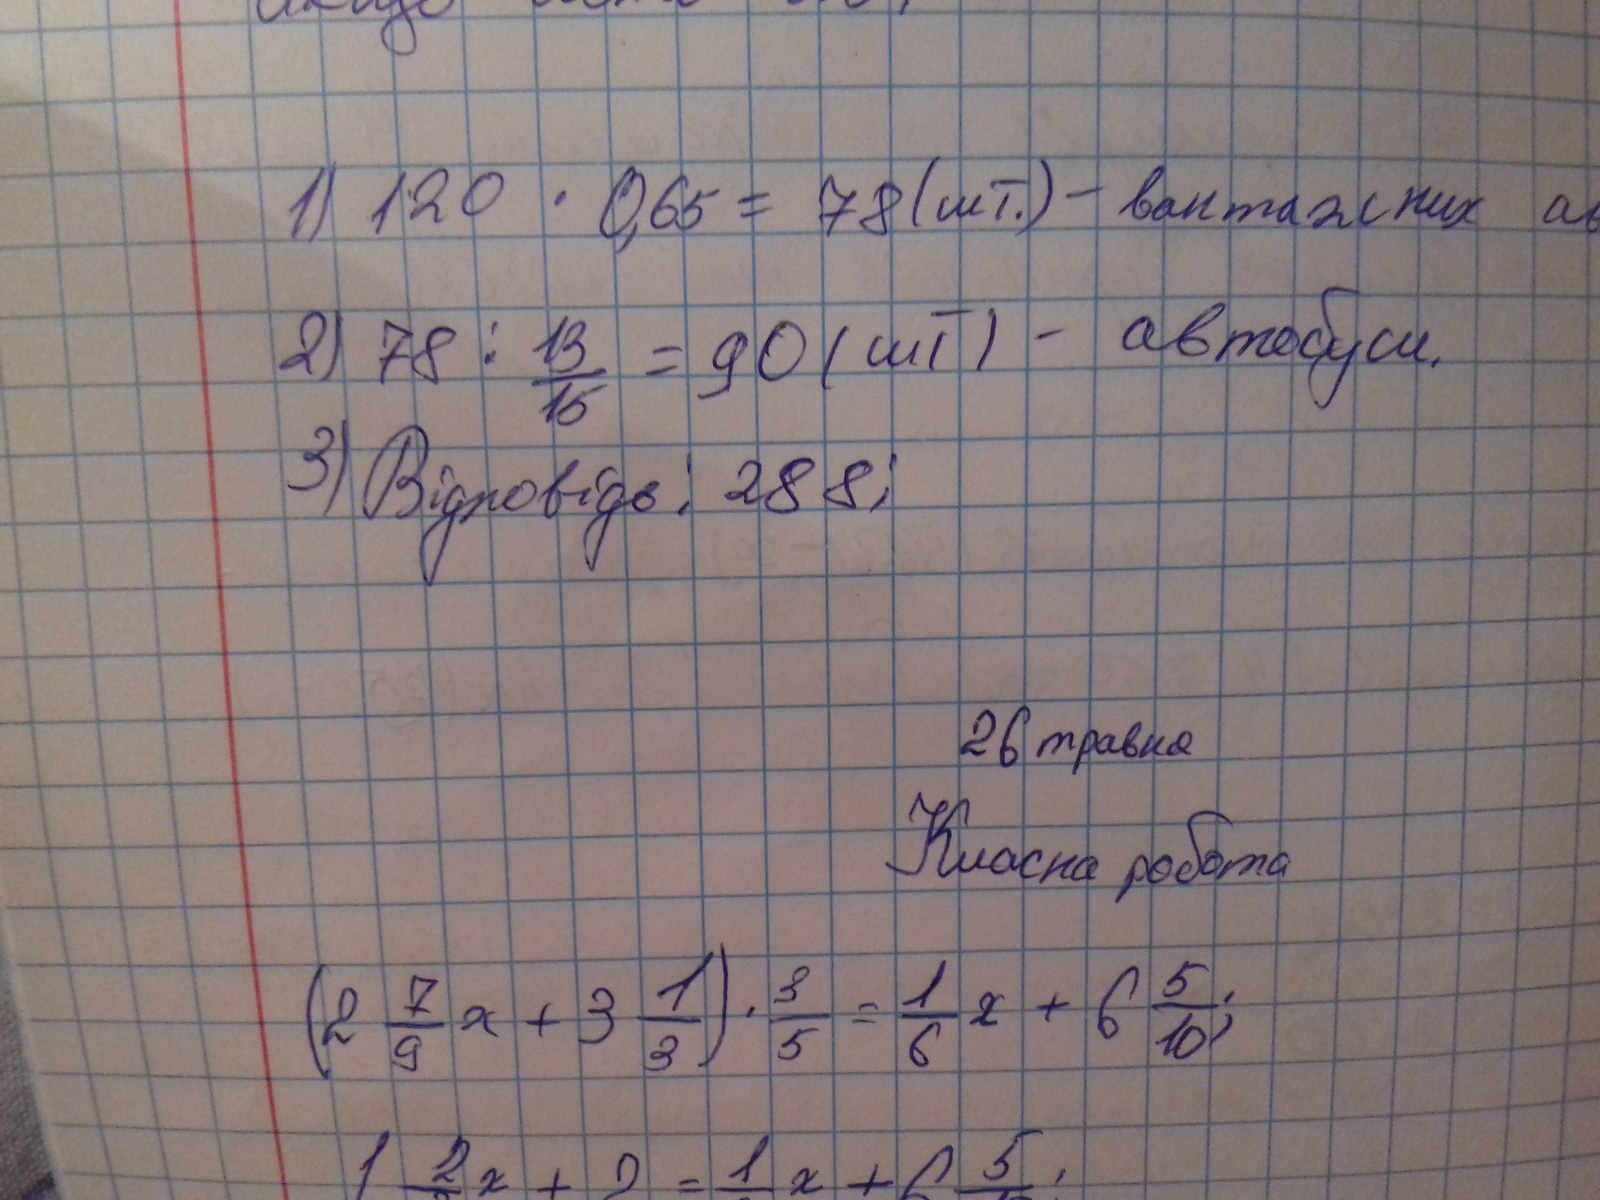 1) 120 · 0,65 = 78 (шт.) - вантажних ав
2) 78 : 13/15 = 90 (шт) - автобуси.
3) Відповідь: 288;
26 травня
Класна робота
(2 7/9 x + 3 1/3) · 3/5 = 1/6 x + 6 5/10;
1 2/3 x + 2 = 1/6 x + 6 5/10;